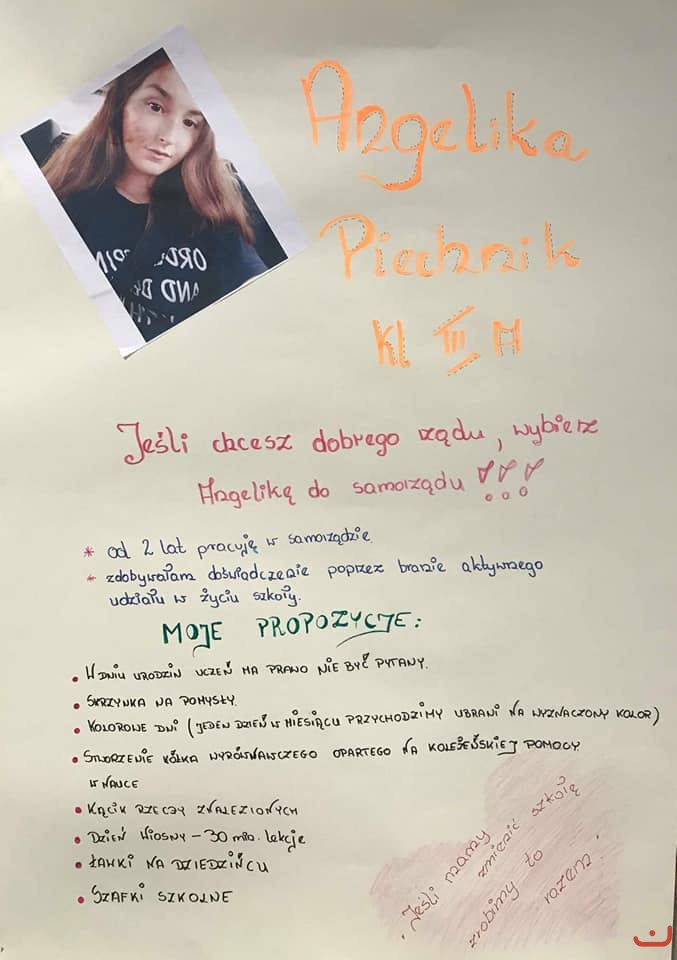 Angelika
Piechnik
Kl III A
Jeśli chcesz dobrego rządu, wybierz
Angelikę do samorządu !!!
* od 2 lat pracuję w samorządzie.
* zdobywałam doświadczenie poprzez branie aktywnego
udziału w życiu szkoły.
MOJE PROPOZYCJE:
• W DNIU URODZIN UCZEŃ MA PRAWO NIE BYĆ PYTANY.
• SKRZYNKA NA POMYSŁY.
• KOLOROWE DNI (JEDEN DZIEŃ W MIESIĄCU PRZYCHODZIMY UBRANI NA WYZNACZONY KOLOR)
• STWORZENIE KÓŁKA WYRÓWNAWCZEGO OPARTEGO NA KOLEŻEŃSKIEJ POMOCY
W NAUCE
• KĄCIK RZECZY ZNALEZIONYCH
• DZIEŃ WIOSNY – 30 min. lekcje
• ŁAWKI NA DZIEDZIŃCU
• SZAFKI SZKOLNE
"Jeśli mamy
zmienić szkołę
zrobimy to
razem."